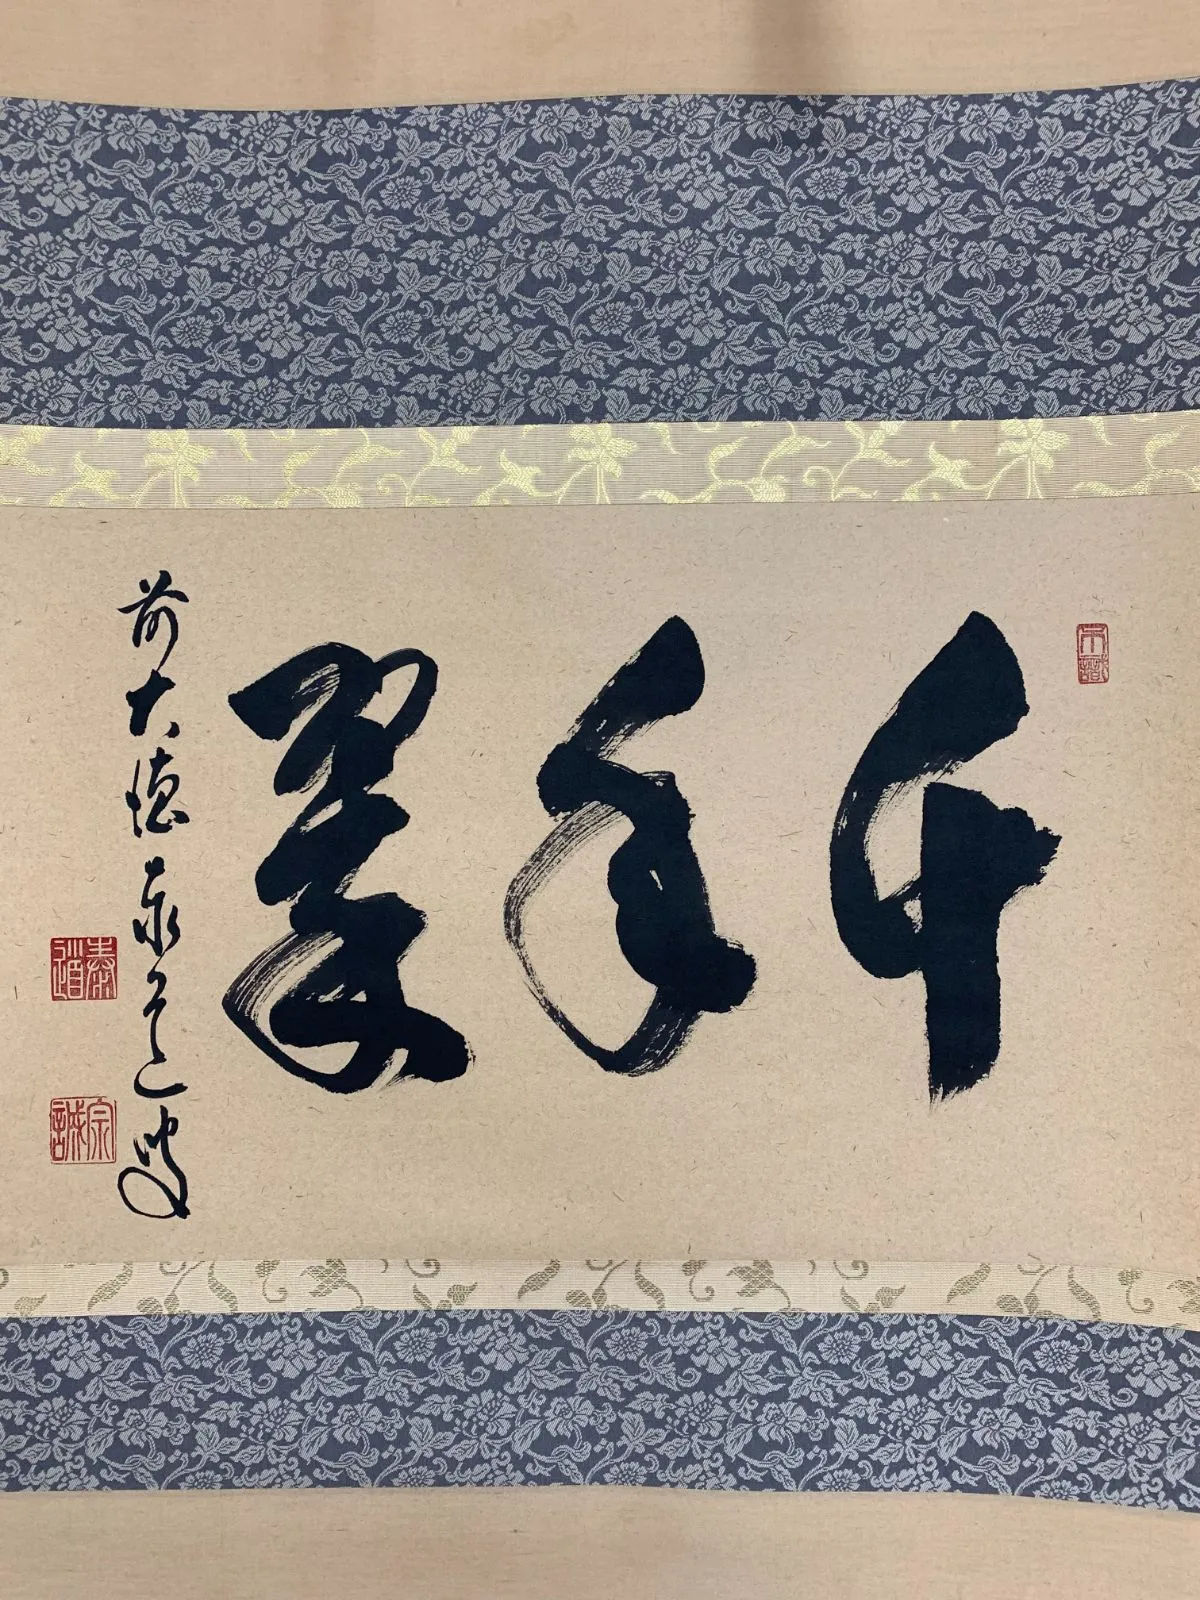 千年翠
前大徳泰道叟
不識
泰道
宗誠